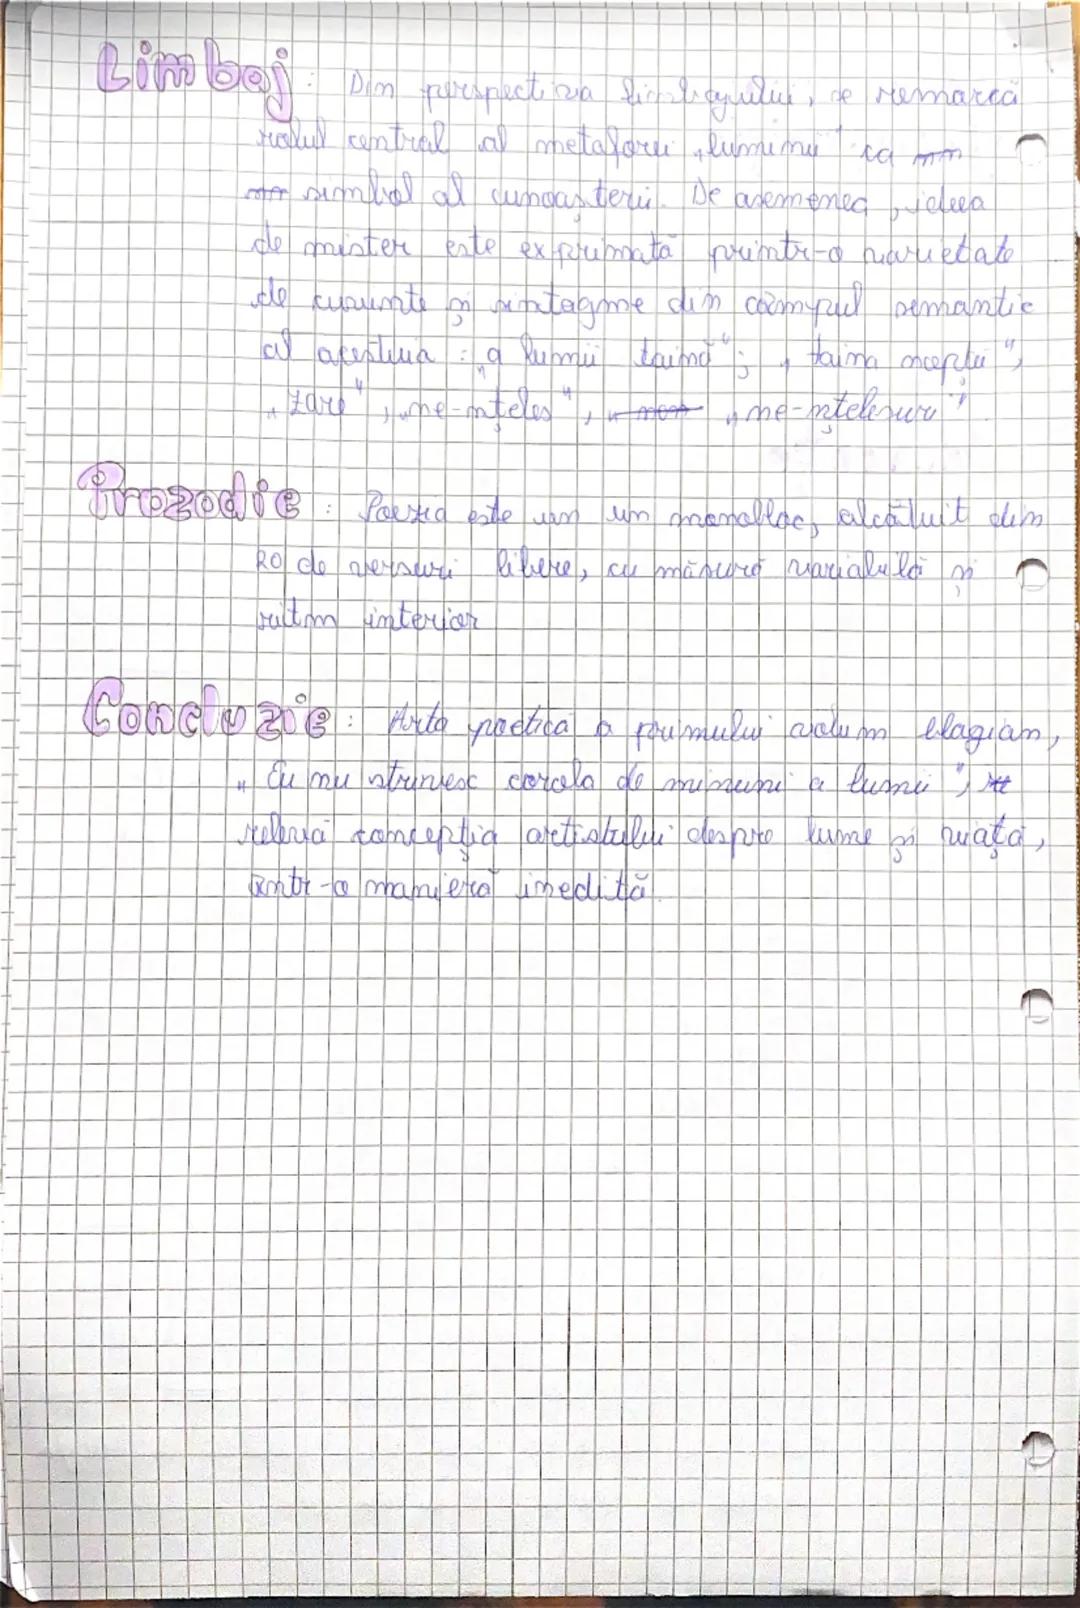 Limbaj : Din perspectiva limbajului, se remarcă
rolul central al metaforei „luminii" ca
simbol al cunoașterii. De asemenea, ideea
de mister este exprimată printr-o varietate
de cuvinte și sintagme din câmpul semantic
al acestuia : „a lumii taină" ; „taina nopții",
„zare", „ne-nțeles", „ne-nțelesuri".
Prozodie : Poezia este un un monobloc, alcătuit din
20 de versuri libere, cu măsură variabilă și
ritm interior
Concluzie : Arta poetică a primului volum blagian,
„Eu nu strivesc corola de minuni a lumii",
relevă concepția artistului despre lume și viață,
într-o manieră inedită.